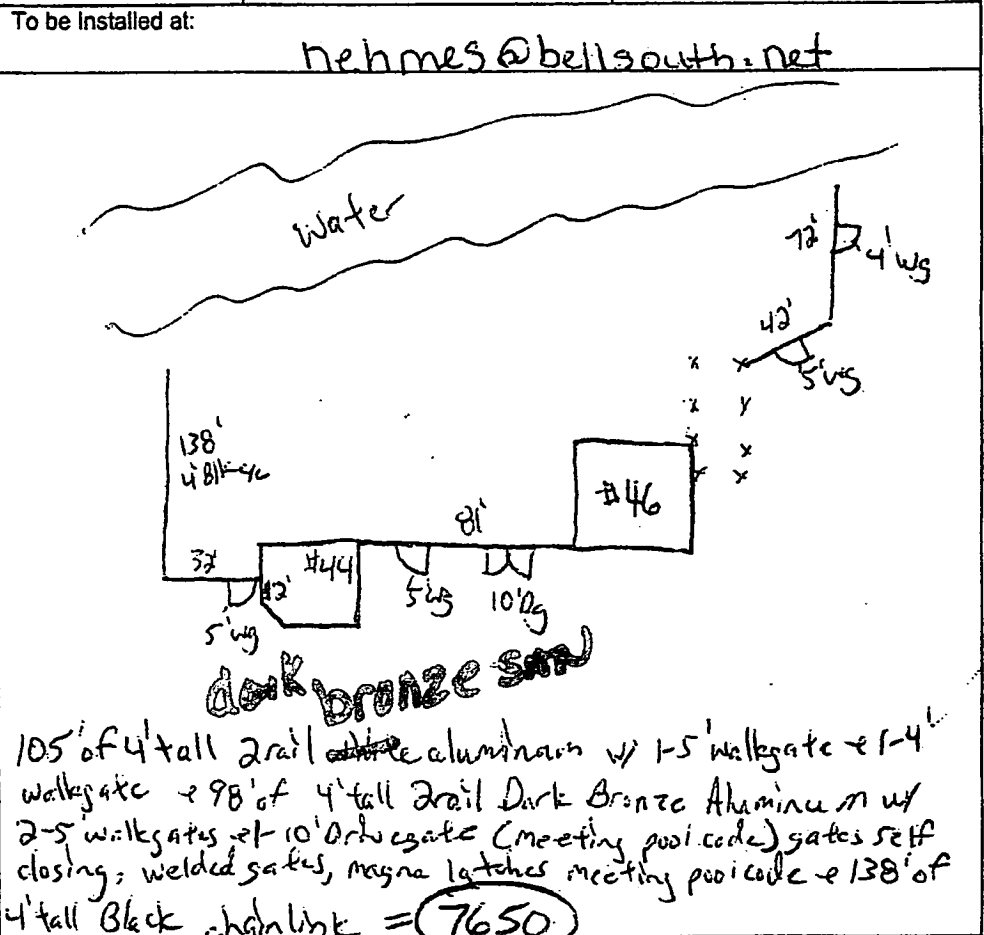 To be Installed at:
nehmes@bellsouth.net
Water
72'
4' wg
42'
5' wg
138'
4' Blk
#46
81'
32'
#44
12'
5' wg
5' wg
10' Dg
dark bronze
105' of 4' tall 2 rail aluminum w/ 1-5' walkgate + 1-4'
walkgate + 98' of 4' tall 2rail Dark Bronze Aluminum w/
2-5' walkgates + 1- 10' Drivegate (meeting pool code) gates self
closing, welded gates, magna latches meeting pool code + 138' of
4' tall Black chainlink = 7650